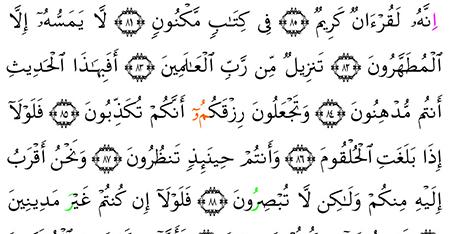 إِنَّهُۥ لَقُرْءَانٌ كَرِيمٌ ٨٠ فِى كِتَٰبٍ مَّكْنُونٍ ٨١ لَّا يَمَسُّهُۥٓ إِلَّا
ٱلْمُطَهَّرُونَ ٨٢ تَنزِيلٌ مِّن رَّبِّ ٱلْعَٰلَمِينَ ٨٣ أَفَبِهَٰذَا ٱلْحَدِيثِ
أَنتُم مُّدْهِنُونَ ٨٤ وَتَجْعَلُونَ رِزْقَكُمُۥٓ أَنَّكُمْ تُكَذِّبُونَ ٨٥ فَلَوْلَآ
إِذَا بَلَغَتِ ٱلْحُلْقُومَ ٨٦ وَأَنتُمْ حِينَئِذٍ تَنظُرُونَ ٨٧ وَنَحْنُ أَقْرَبُ
إِلَيْهِ مِنكُمْ وَلَٰكِن لَّا تُبْصِرُونَ ٨٨ فَلَوْلَآ إِن كُنتُمْ غَيْرَ مَدِينِينَ